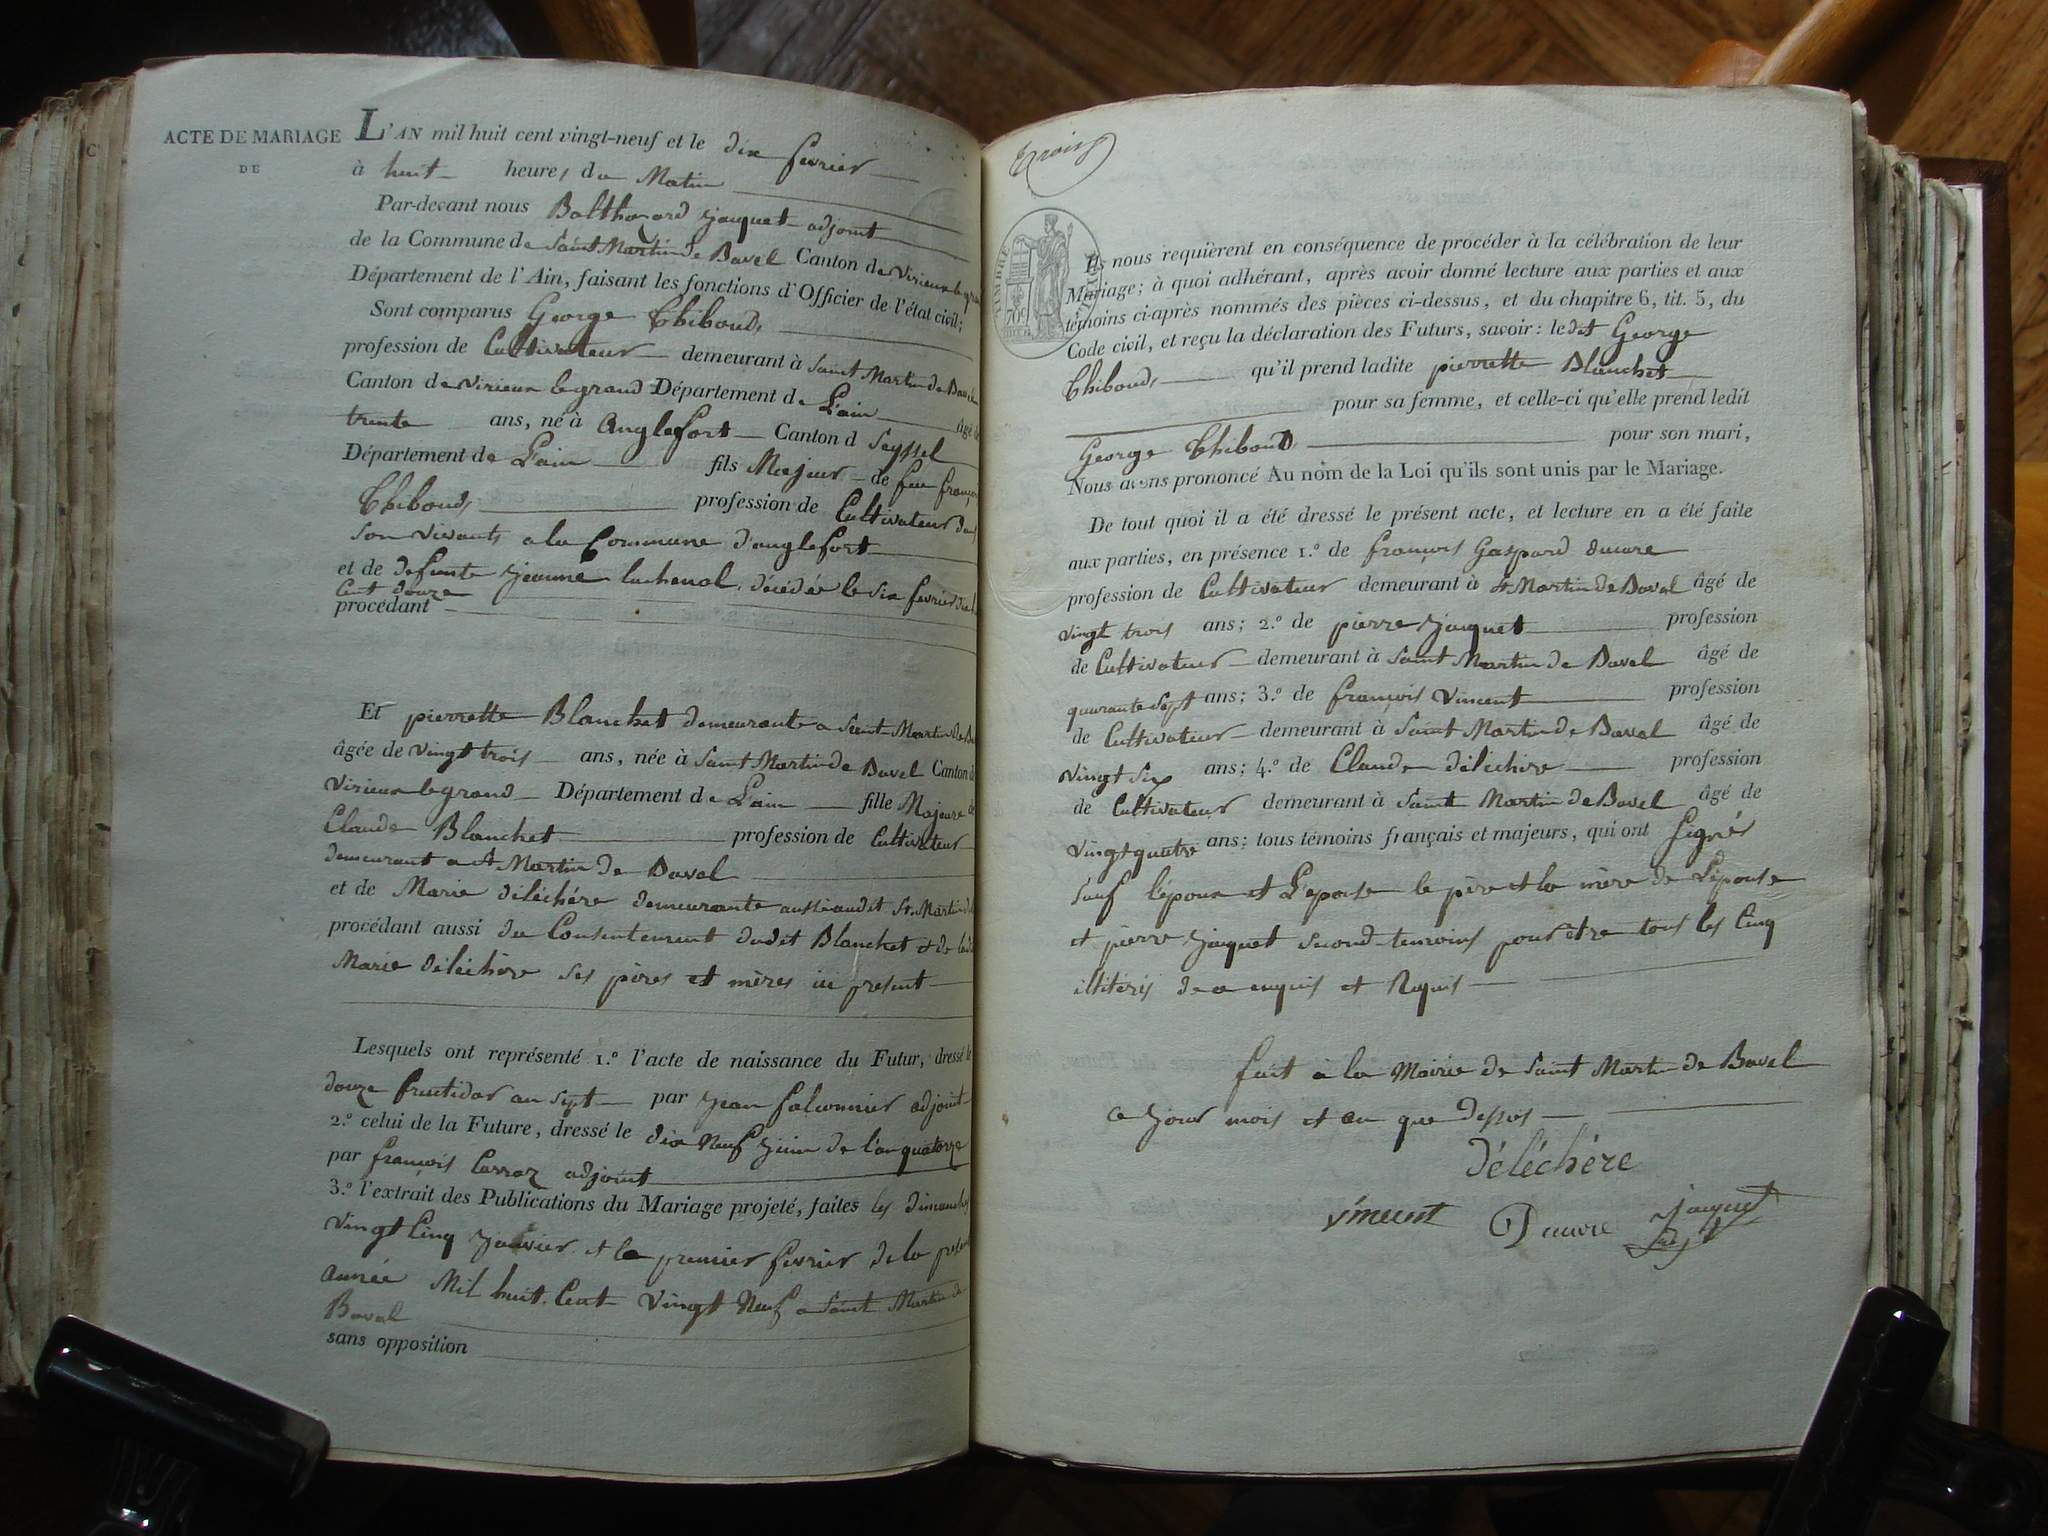 ACTE DE MARIAGE
DE
L'AN mil huit cent vingt-neuf et le dix fevrier
à huit heures du Matin
Par-devant nous Balthazard jacquet adjoint
de la Commune de Saint Martin de Bavel Canton de Virieux le gran
Département de l'Ain, faisant les fonctions d'Officier de l'état civil;
Sont comparus George Thiboud
profession de Cultivateur demeurant à Saint Martin de Bavel
Canton de Virieux le grand Département de L'ain âgé de
trente ans, né à Anglefort Canton d Seyssel
Département de L'ain fils Majeur de feu françois
Thiboud profession de Cultivateur de
son vivants a la Commune d'anglefort
et de defunte jeanne lachenal, décédée le six fevrier
Cent douze
procédant
Et pierrette Blanchet demeurante a Saint Martin de Ba
âgée de vingt trois ans, née à Saint Martin de Bavel Canton de
Virieux le grand Département de L'ain fille Majeure de
Claude Blanchet profession de Cultivateur
demeurant a St Martin de Bavel
et de Marie déléchére demeurante aussi audit St Martin de
procédant aussi du Consentement dudit Blanchet et de
Marie déléchére ses pères et mères ici present
Lesquels ont représenté 1.º l'acte de naissance du Futur, dressé le
douze fructidor an sept par jean falconnier adjoint
2.º celui de la Future, dressé le dix Neuf juin de l'an quatorze
par françois Carraz adjoint
3.º l'extrait des Publications du Mariage projeté, faites les dimanches
vingt Cinq janvier et le premier fevrier de la present
année Mil huit Cent Vingt Neuf a Saint Martin de
Bavel
sans opposition
Trois
TIMBRE ROYAL
70c
Ils nous requièrent en conséquence de procéder à la célébration de leur
Mariage; à quoi adhérant, après avoir donné lecture aux parties et aux
témoins ci-après nommés des pièces ci-dessus, et du chapitre 6, tit. 5, du
Code civil, et reçu la déclaration des Futurs, savoir: ledit George
Thiboud qu'il prend ladite pierrette Blanchet
pour sa femme, et celle-ci qu'elle prend ledit
George Thiboud pour son mari,
Nous avons prononcé Au nom de la Loi qu'ils sont unis par le Mariage.
De tout quoi il a été dressé le présent acte, et lecture en a été faite
aux parties, en présence 1.º de françois Gaspard ducure
profession de Cultivateur demeurant à St Martin de Bavel âgé de
vingt trois ans; 2.º de pierre jacquet profession
de Cultivateur demeurant à Saint Martin de Bavel âgé de
quarante sept ans; 3.º de françois Vincent profession
de Cultivateur demeurant à Saint Martin de Bavel âgé de
vingt six ans; 4.º de Claude déléchére profession
de Cultivateur demeurant à Saint Martin de Bavel âgé de
vingt quatre ans; tous témoins français et majeurs, qui ont signés
sauf lépoux et L'epouse le père et la mère de L'épouse
et pierre jacquet second temoins pour etre tous les Cinq
illiteris de a enquis et Requis
fait à la Mairie de Saint Martin de Bavel
ce jour mois et an que dessus
déléchére
vincent Ducure Jacquet
adjt